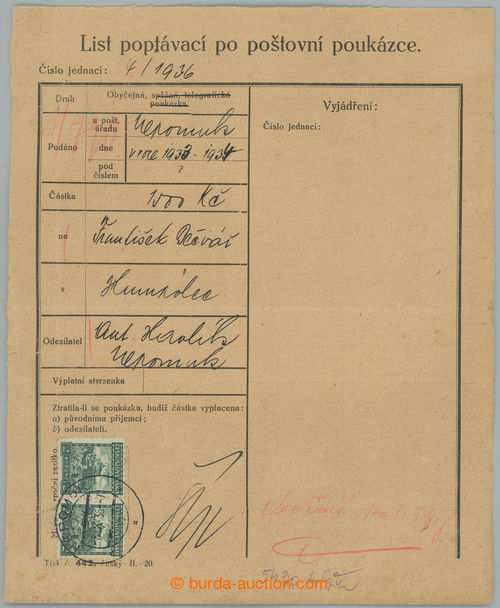 List poptávací po poštovní poukázce.
Číslo jednací: 4/1936
Druh
Obyčejná, spěšná, telegrafická
poukázka.
Podáno
u pošt.
úřadu
Nepomuk
dne
v roce 1933-1934
pod
číslem
?
Částka
1000 Kč
na
František
v
Humpolec
Odesílatel
Ant.
Nepomuk
Výplatní stvrzenka
Ztratila-li se poukázka, budiž částka vyplacena:
a) původnímu příjemci;
b) odesílateli.
Tisk č. 442. český - II. - 20.
Vyjádření:
Číslo jednací:
© burda-auction.com